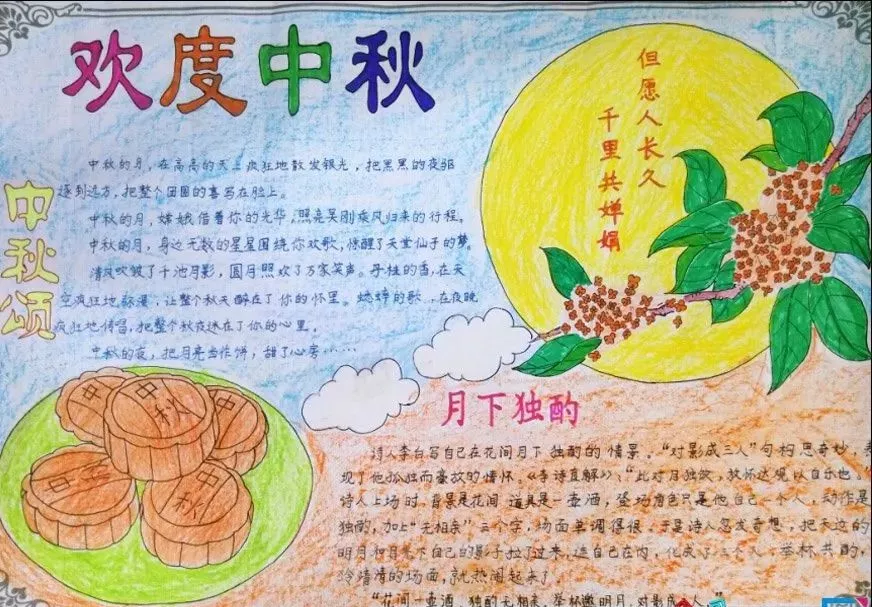 欢度中秋
但愿人长久
千里共婵娟
中秋颂
中秋的月，在高高的天上疯狂地散发银光，把黑黑的夜驱
逐到远方，把整个团圆的喜写在脸上。
中秋的月，嫦娥借着你的光华，照亮吴刚乘风归来的行程。
中秋的月，身边无数的星星围绕你欢歌，惊醒了天堂仙子的梦。
清风吹皱了千池月影，圆月照欢了万家笑声。丹桂的香，在天
空疯狂地弥漫，让整个秋天醉在了你的怀里。蟋蟀的歌，在夜晚
疯狂地传唱，把整个秋夜迷在了你的心里。
中秋的夜，把月亮当作饼，甜了心房……
中秋
中秋
中秋
中秋
月下独酌
诗人李白写自己在花间月下独酌的情景。“对影成三人”句构思奇妙，表
现了他孤独而豪放的情怀。《李诗直解》：“此对月独饮，放怀达观以自乐也。
诗人上场时，背景是花间，道具是一壶酒，登场角色只是他自己一个人，动作是
独酌，加上“无相亲”三个字，场面单调得很。于是诗人忽发奇想，把天边的
明月和月光下自己的影子拉了过来，连自己在内，化成了三个人，举杯共酌，
冷清清的场面，就热闹起来了
“花间一壶酒，独酌无相亲。举杯邀明月，对影成 人。”